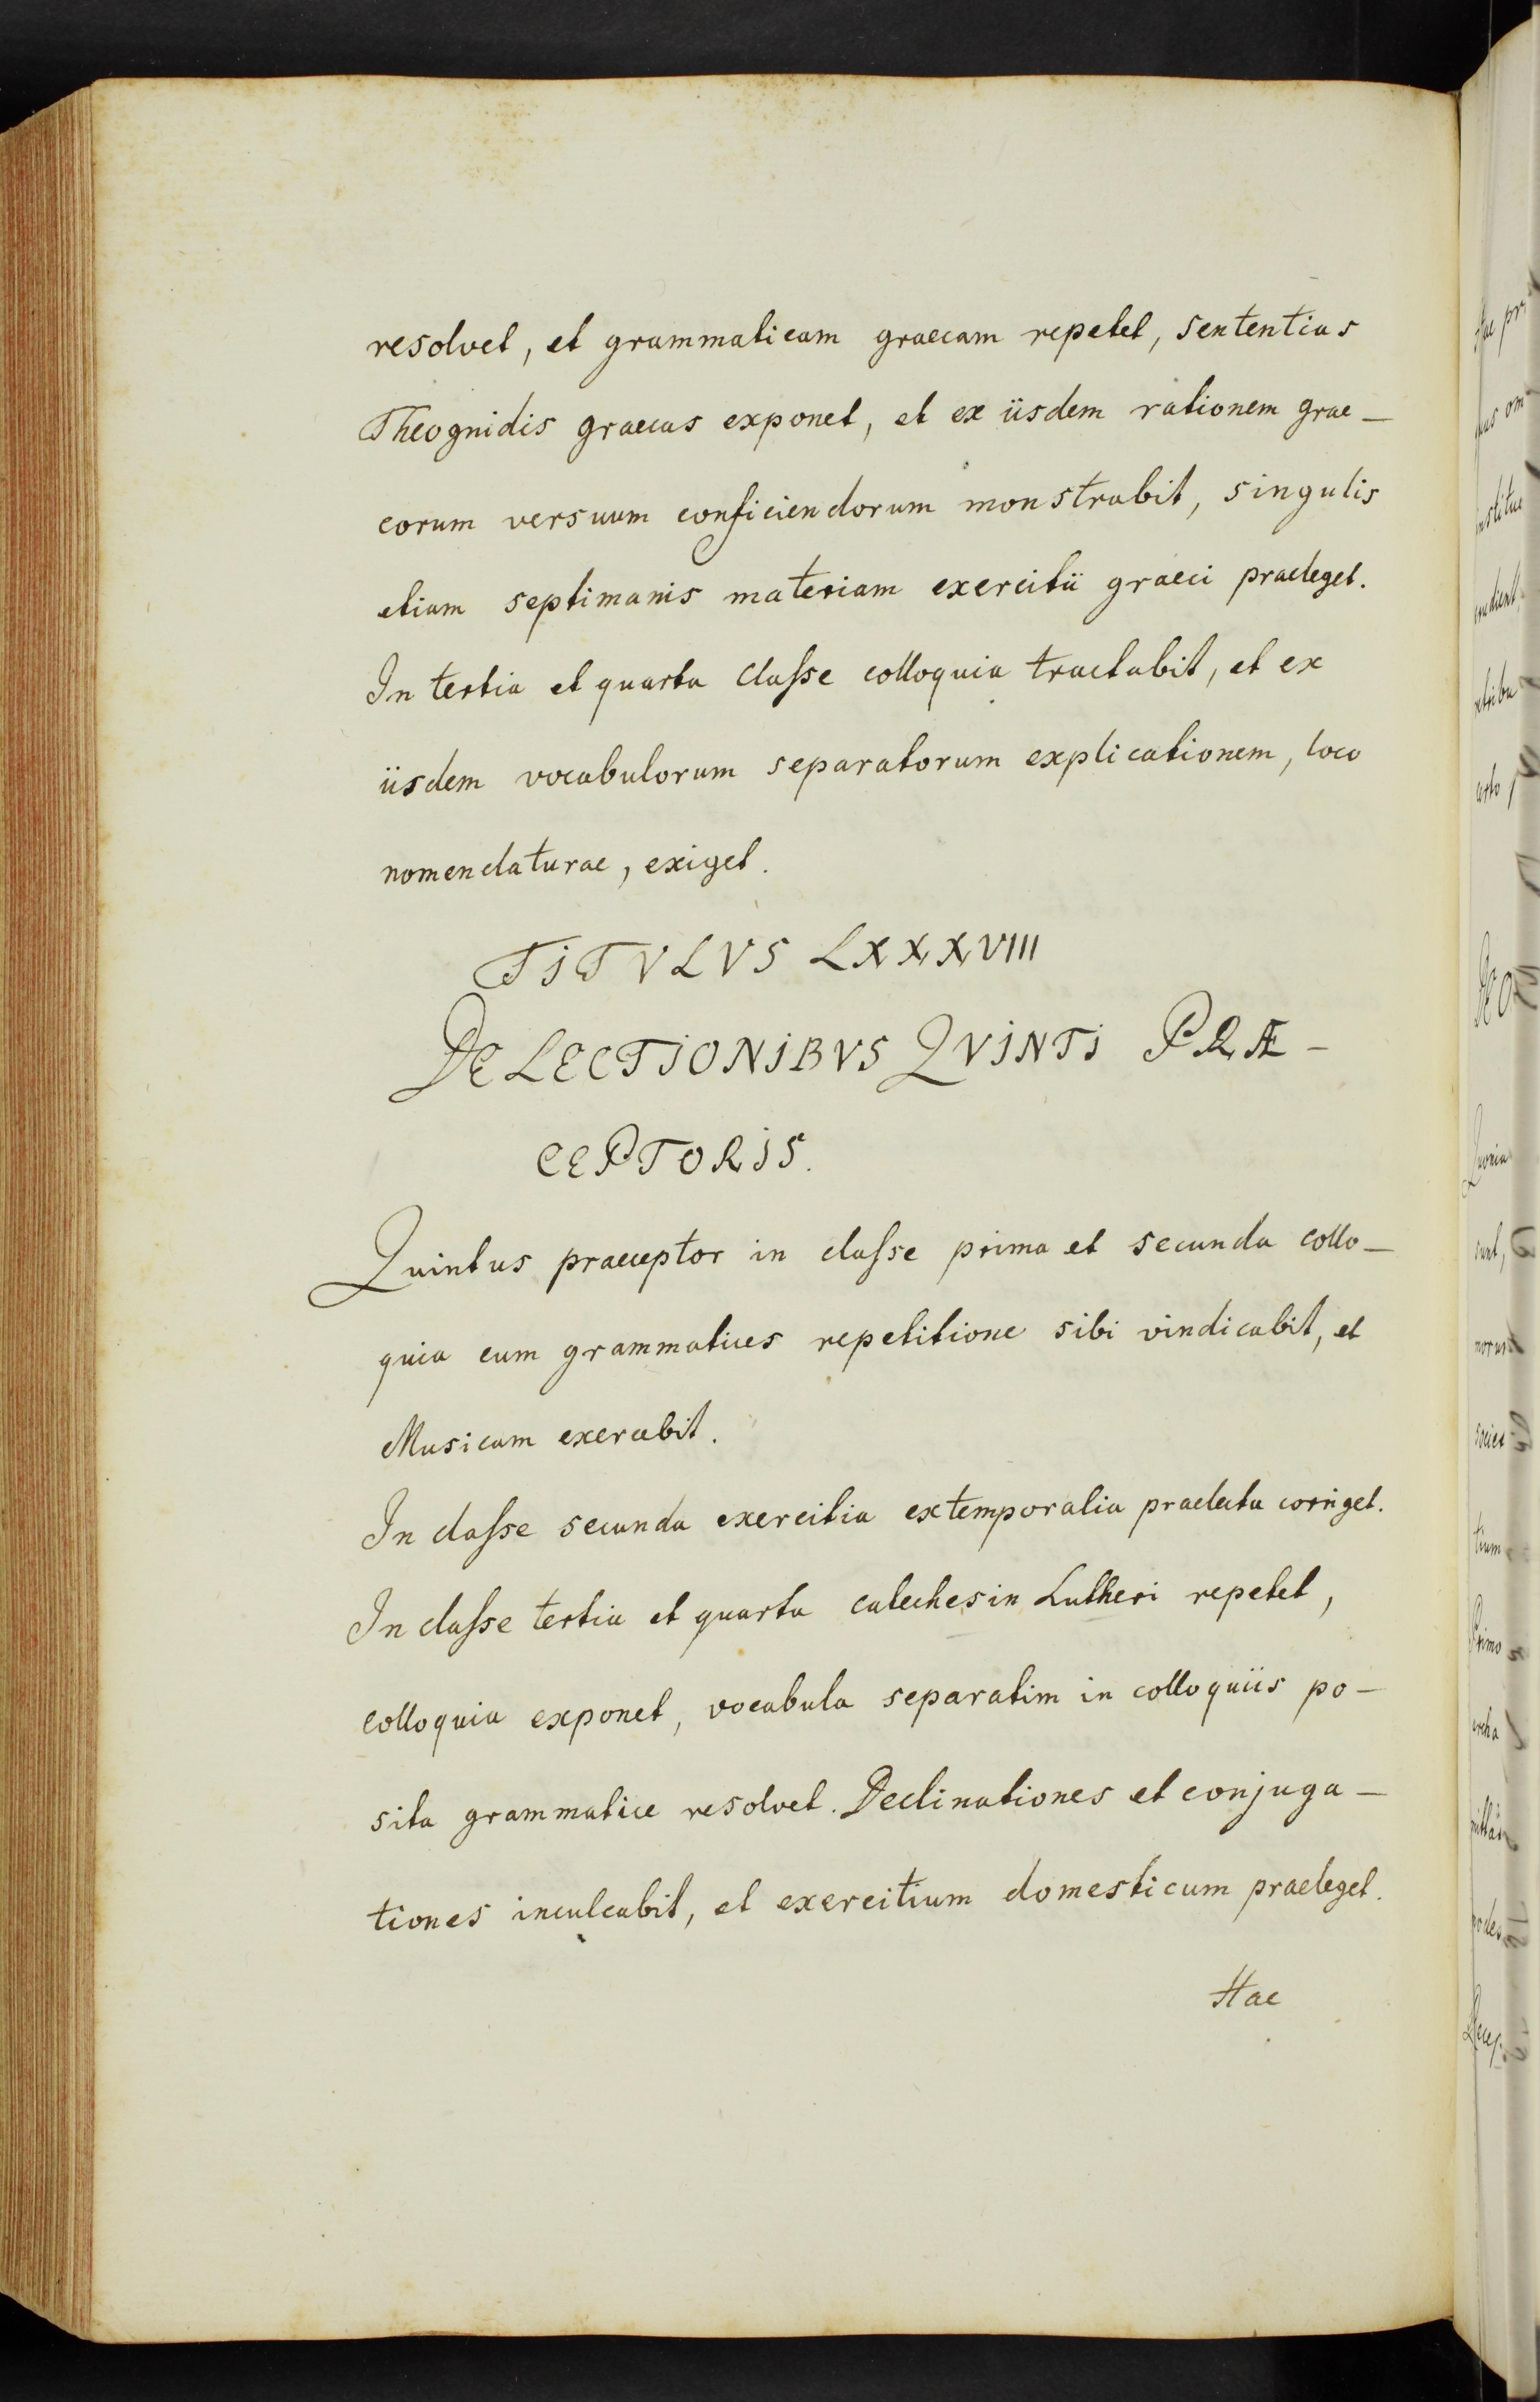 resolvet, et grammaticam graecam repetet, sententias
Theognidis graecas exponet, et ex iisdem rationem grae-
corum versuum conficiendorum monstrabit, singulis
etiam septimanis materiam exercitii graeci praeleget.
In tertia et quarta classe colloquia tractabit, et ex
iisdem vocabulorum separatorum explicationem, loco
nomenclaturae, exiget.
TITVLVS LXXXVIII
DE LECTIONIBVS QVINTI PRÆ-
CEPTORIS.
Quintus praeceptor in classe prima et secunda collo-
quia cum grammatices repetitione sibi vindicabit, et
Musicam exercebit.
In classe secunda exercitia extemporalia praelecta corriget.
In classe tertia et quarta catechesin Lutheri repetet,
colloquia exponet, vocabula separatim in colloquiis po-
sita grammatice resolvet. Declinationes et conjuga-
tiones inculcabit, et exercitium domesticum praeleget.
Hae